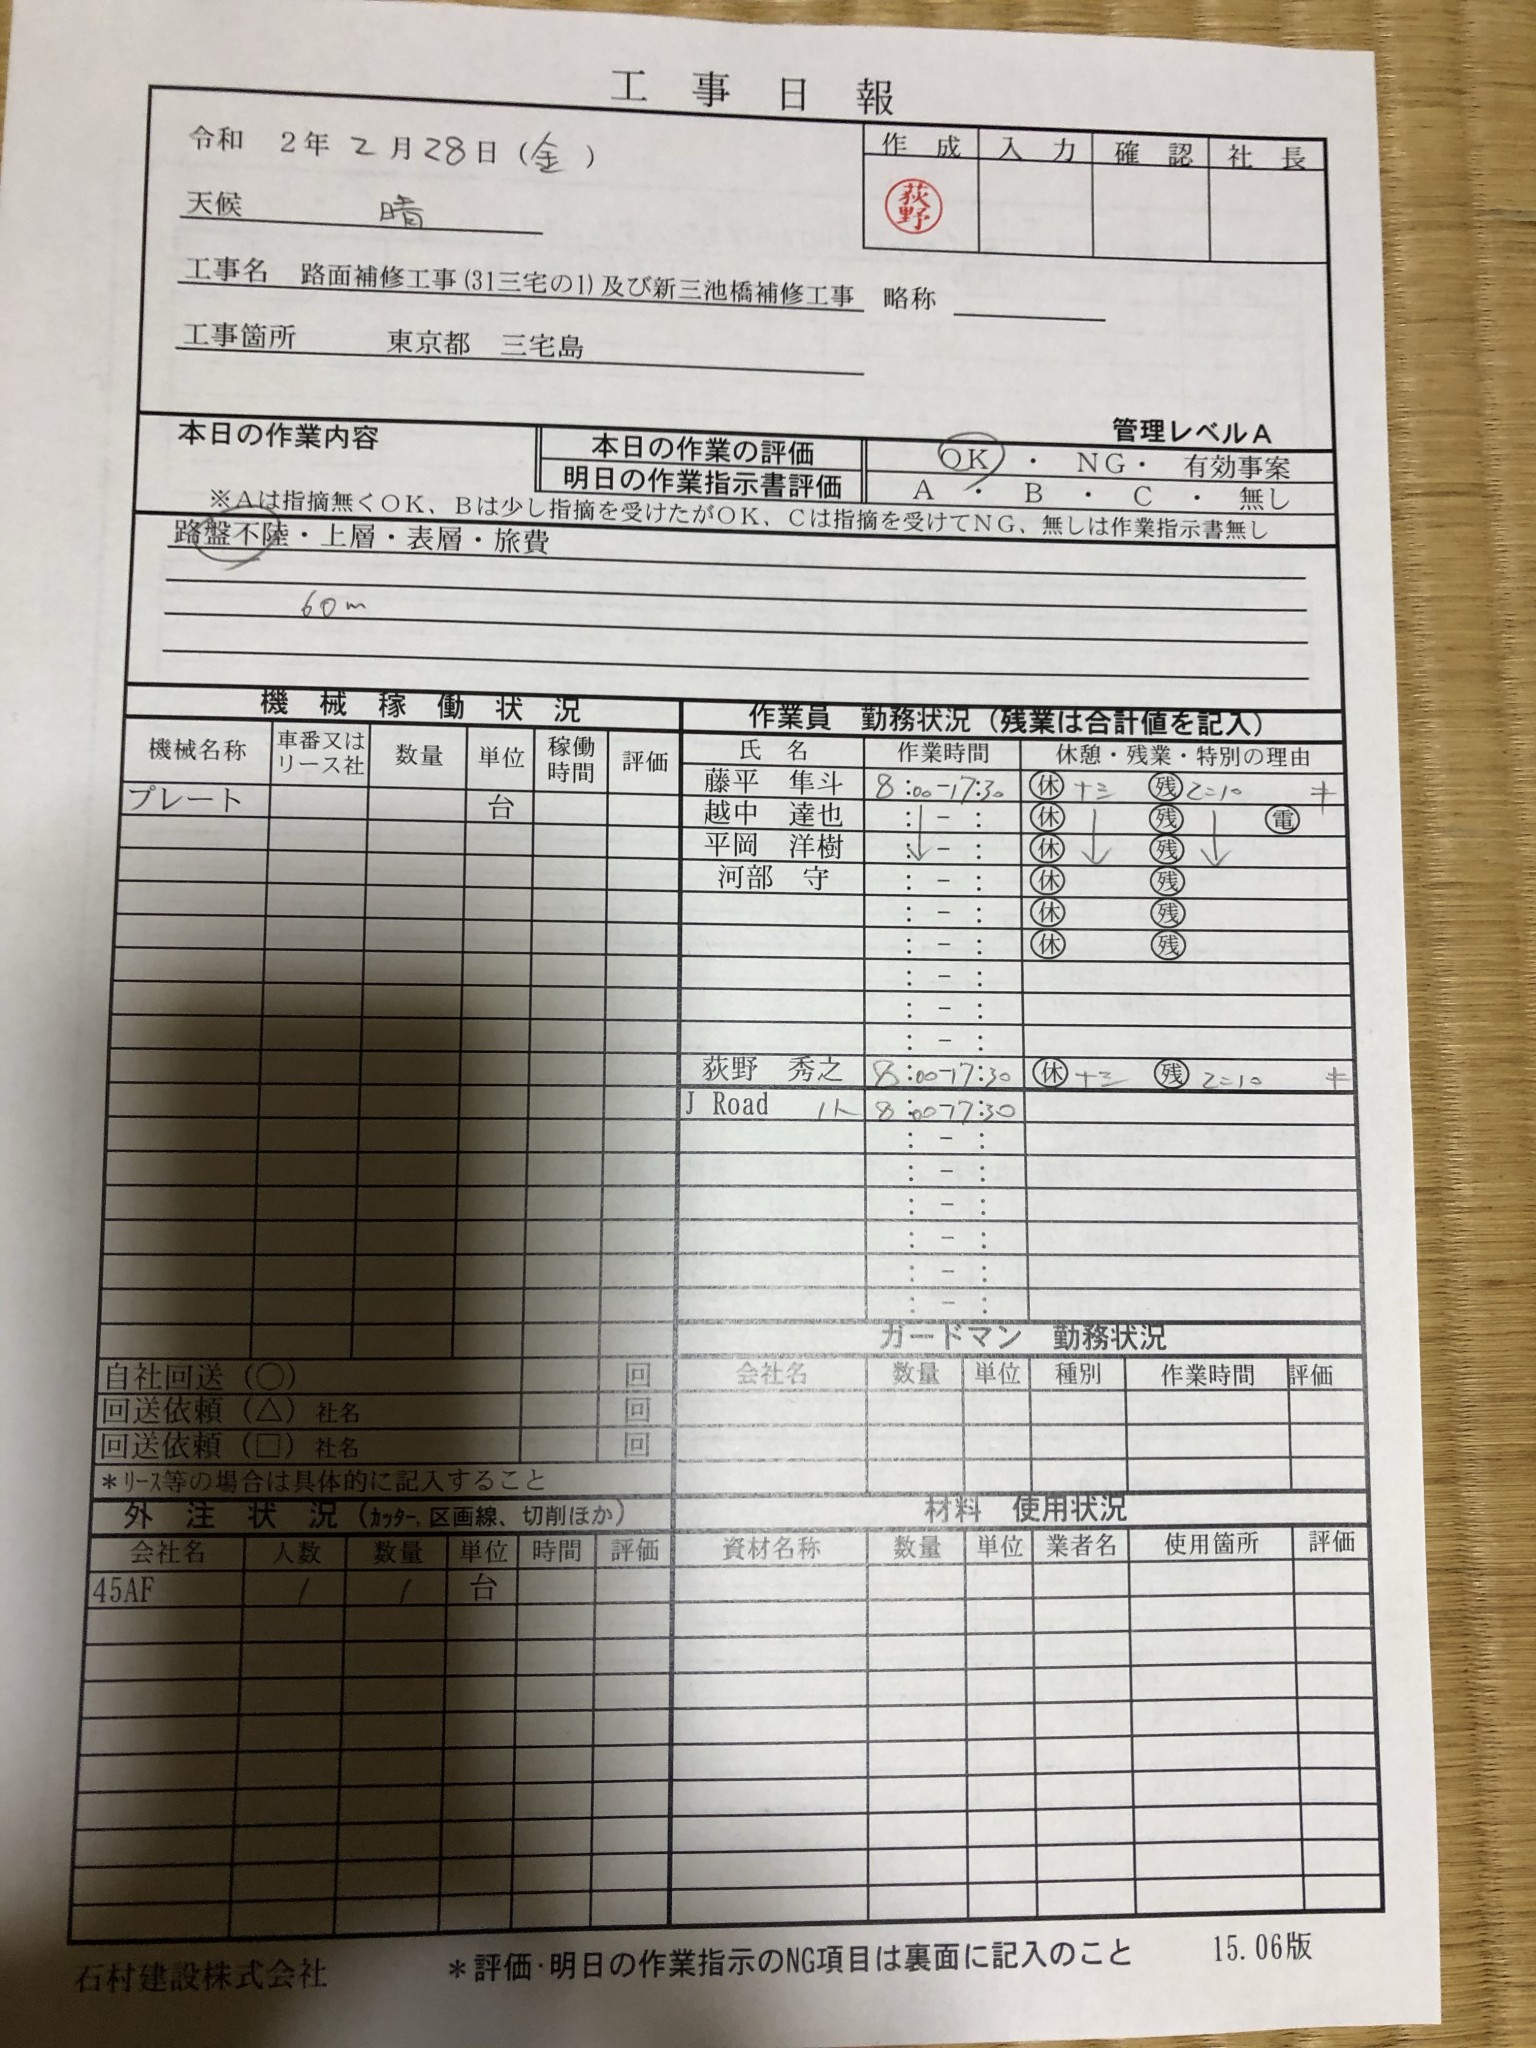 工事日報
令和 2年 2月28日(金)
作成 入力 確認 社長
荻野
天候 晴
工事名 路面補修工事(31三宅の1)及び新三池橋補修工事 略称
工事箇所 東京都 三宅島
管理レベルA
本日の作業内容 本日の作業の評価 OK・NG・有効事案
明日の作業指示書評価 A・B・C・無し
※Aは指摘無くOK、Bは少し指摘を受けたがOK、Cは指摘を受けてNG、無しは作業指示書無し
路盤不陸・上層・表層・旅費
60m
機械稼働状況
機械名称 車番又はリース社 数量 単位 稼働時間 評価
プレート 台
作業員 勤務状況(残業は合計値を記入)
氏名 作業時間 休憩・残業・特別の理由
藤平 隼斗 8:00-17:30 休 残
越中 達也 : - : 休 残 電
平岡 洋樹 : - : 休 残
河部 守 : - : 休 残
: - : 休 残
: - : 休 残
: - :
: - :
: - :
荻野 秀之 8:00-17:30 休 残
J Road 1人 8:00-17:30
: - :
: - :
: - :
: - :
: - :
: - :
自社回送(○) 回
回送依頼(△) 社名 回
回送依頼(□) 社名 回
*リース等の場合は具体的に記入すること
ガードマン 勤務状況
会社名 数量 単位 種別 作業時間 評価
外注状況(カッター,区画線、切削ほか)
会社名 人数 数量 単位 時間 評価
45AF 1 1 台
材料 使用状況
資材名称 数量 単位 業者名 使用箇所 評価
石村建設株式会社 *評価・明日の作業指示のNG項目は裏面に記入のこと 15.06版